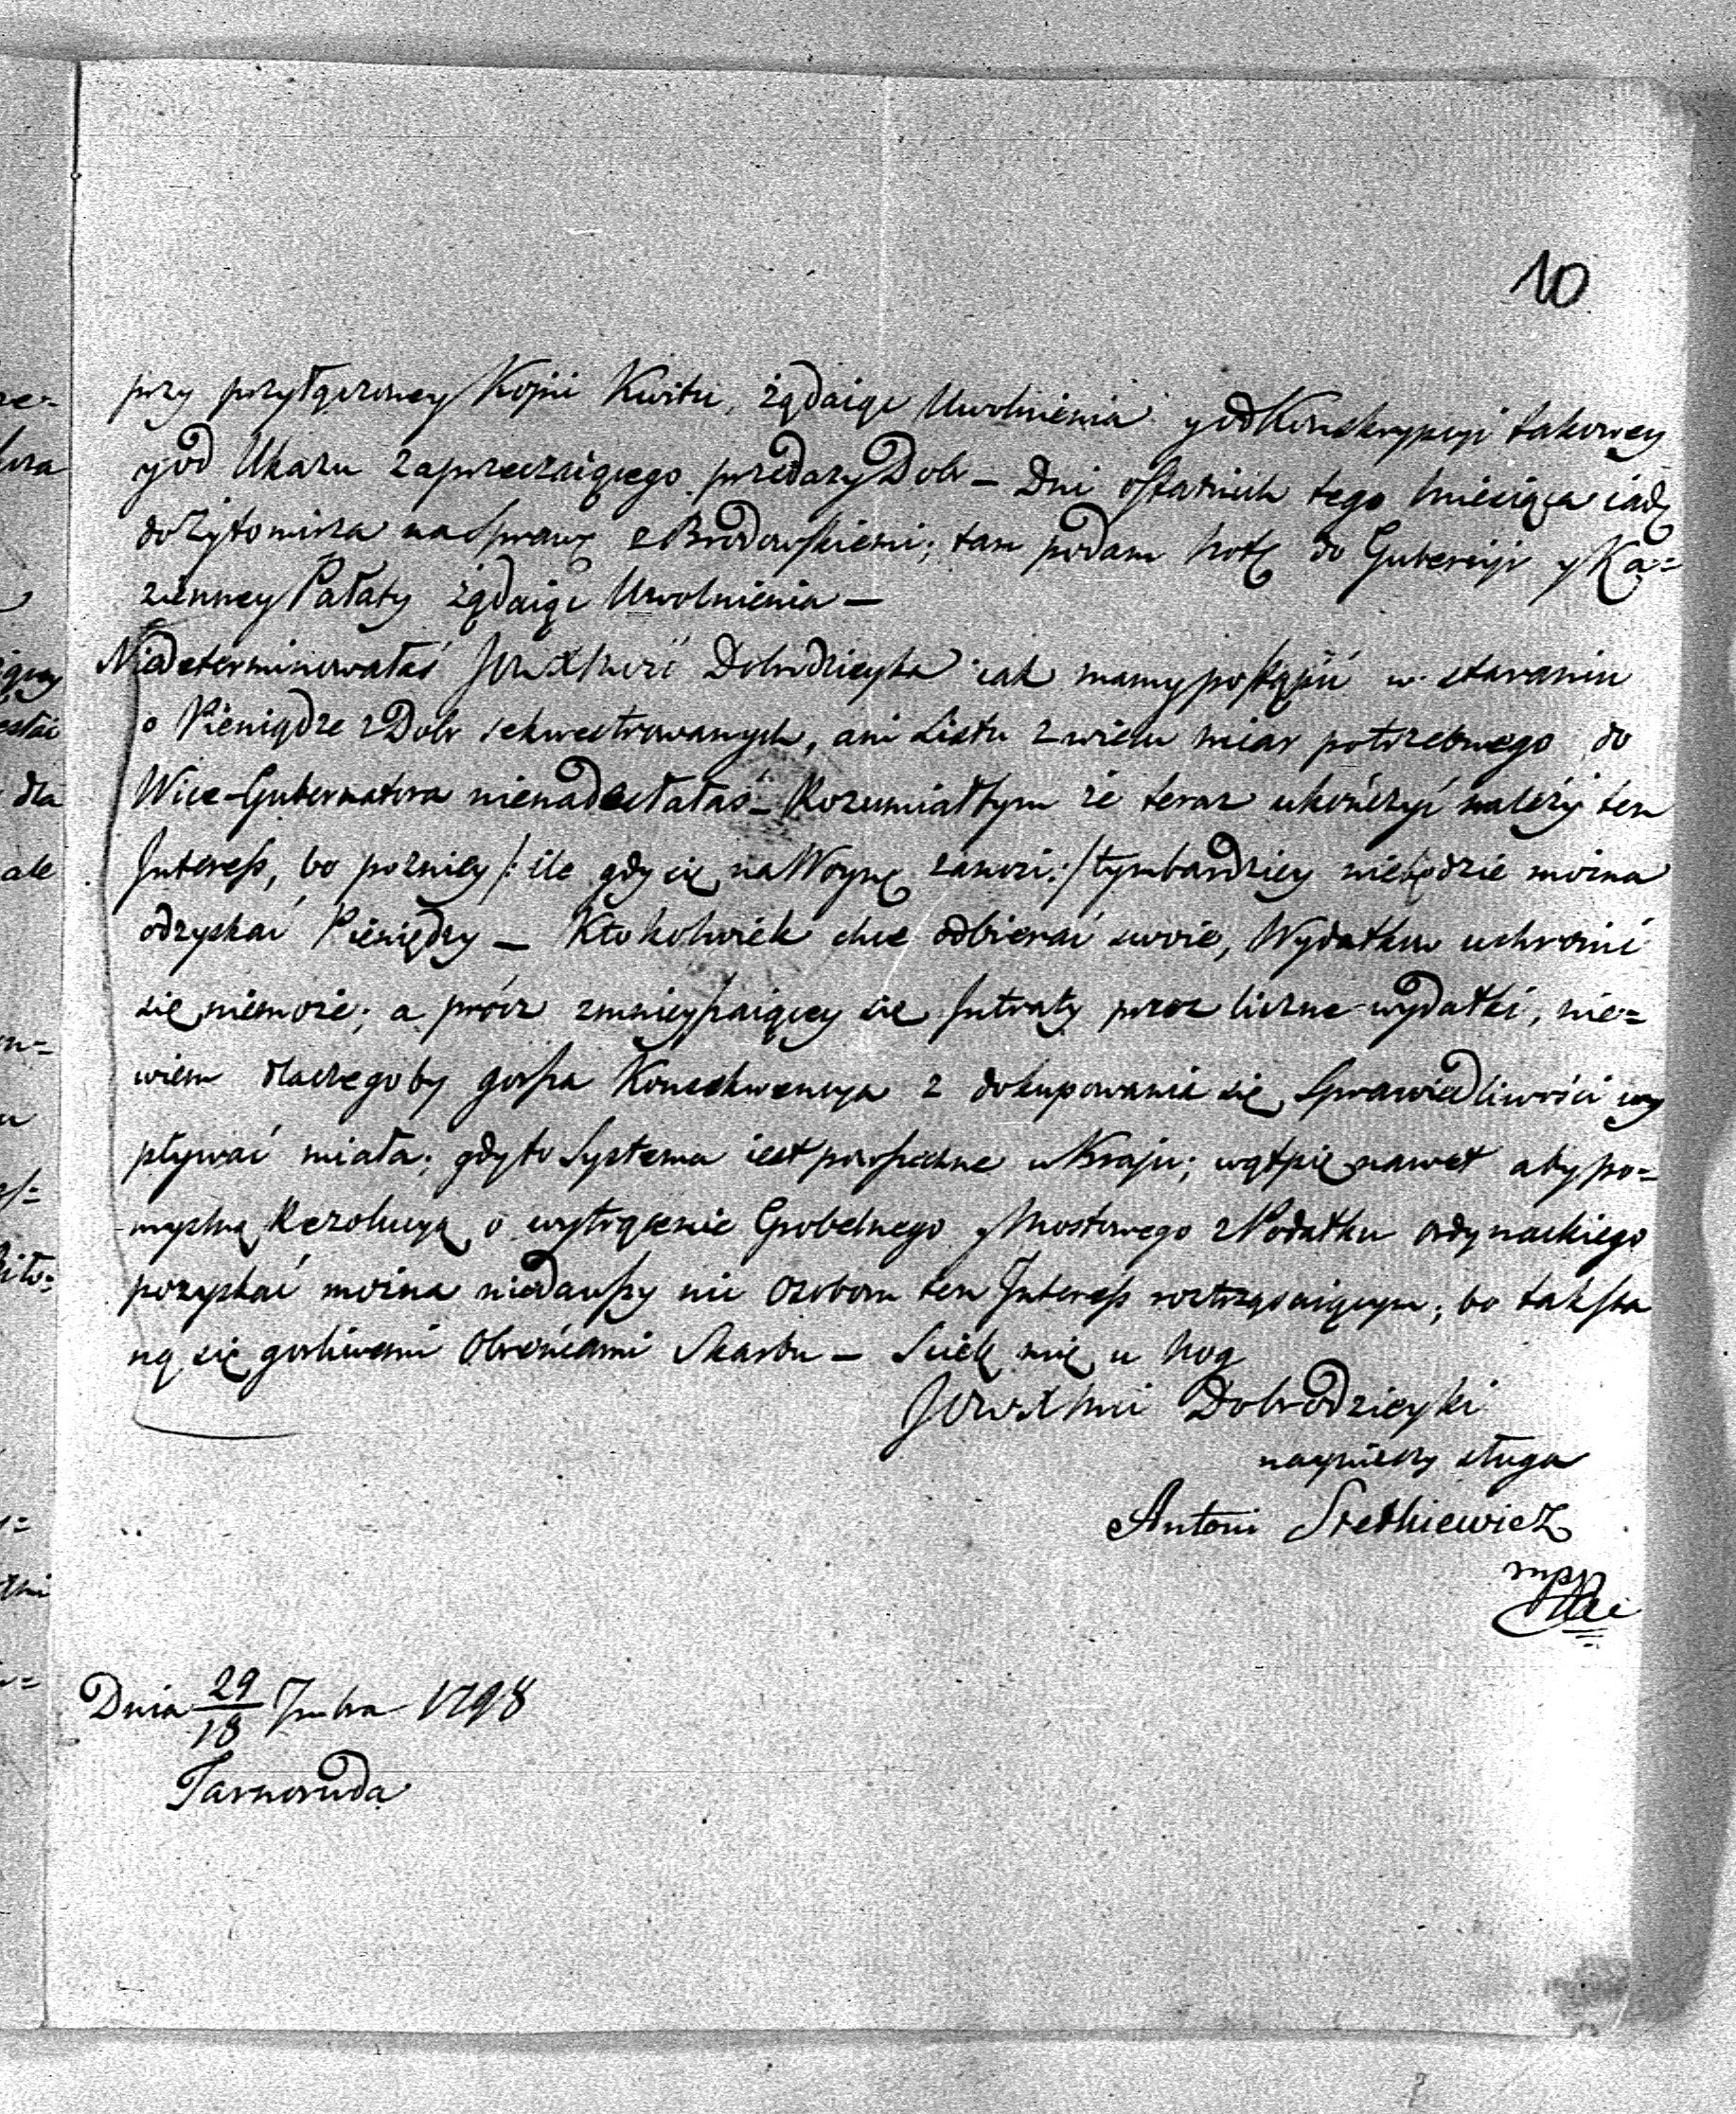 10
przy przyłączoney Kopii Kwitu, żądaiąc Uwolnienia y od Konskrypcyi takowey
y od Ukazu zaprzeczaiącego przedaży Dobr – Dni ostatnich tego Miesiąca iadę
do Zytomirza na Sprawę z Brodowskiemi; tam podam Notę do Gubernij y Ka=
zienney Pałaty żądaiąc Uwolnienia –
Niedeterminowałaś JOWXMość Dobrodzieyka iak mamy postąpić w staraniu
o Pieniądze z Dobr sekwestrowanych, ani Listu z wielu miar potrzebnego do
Wice-Gubernatora nienadesłałaś – Rozumiałbym że teraz ukończyć należy ten
Interess, bo pozniey /: ile gdy się na Woynę zanosi :/ tymbardziey niebędzie można
odzyskać Pieniędzy – Ktokolwiek chce odbierać swoie, Wydatku uchronić
się niemoże; a prócz zmnieyszaiącey się Intraty przez liczne wydatki, nie=
wiem dlaczegoby gorsza Konsekwencya z dokupowania się Sprawiedliwości wy
pływać miała; gdy to Systema iest powszechne w Kraju; wątpię nawet aby po=
myslną Rezolucyą o wytrącenie Grobelnego y Mostowego z Podatku ordynackiego
pozyskać można niedawszy nic Osobom ten Interess roztrząsaiącym; bo tak sta
ną się gorliwemi Obrońcami Skarbu – Scielę się u Nog
JOWXMci Dobrodzieyki
nayniższy sługa
Antoni Sretkiewicz
mp
Dnia 29/18 7mbra 1798
Tarnoruda